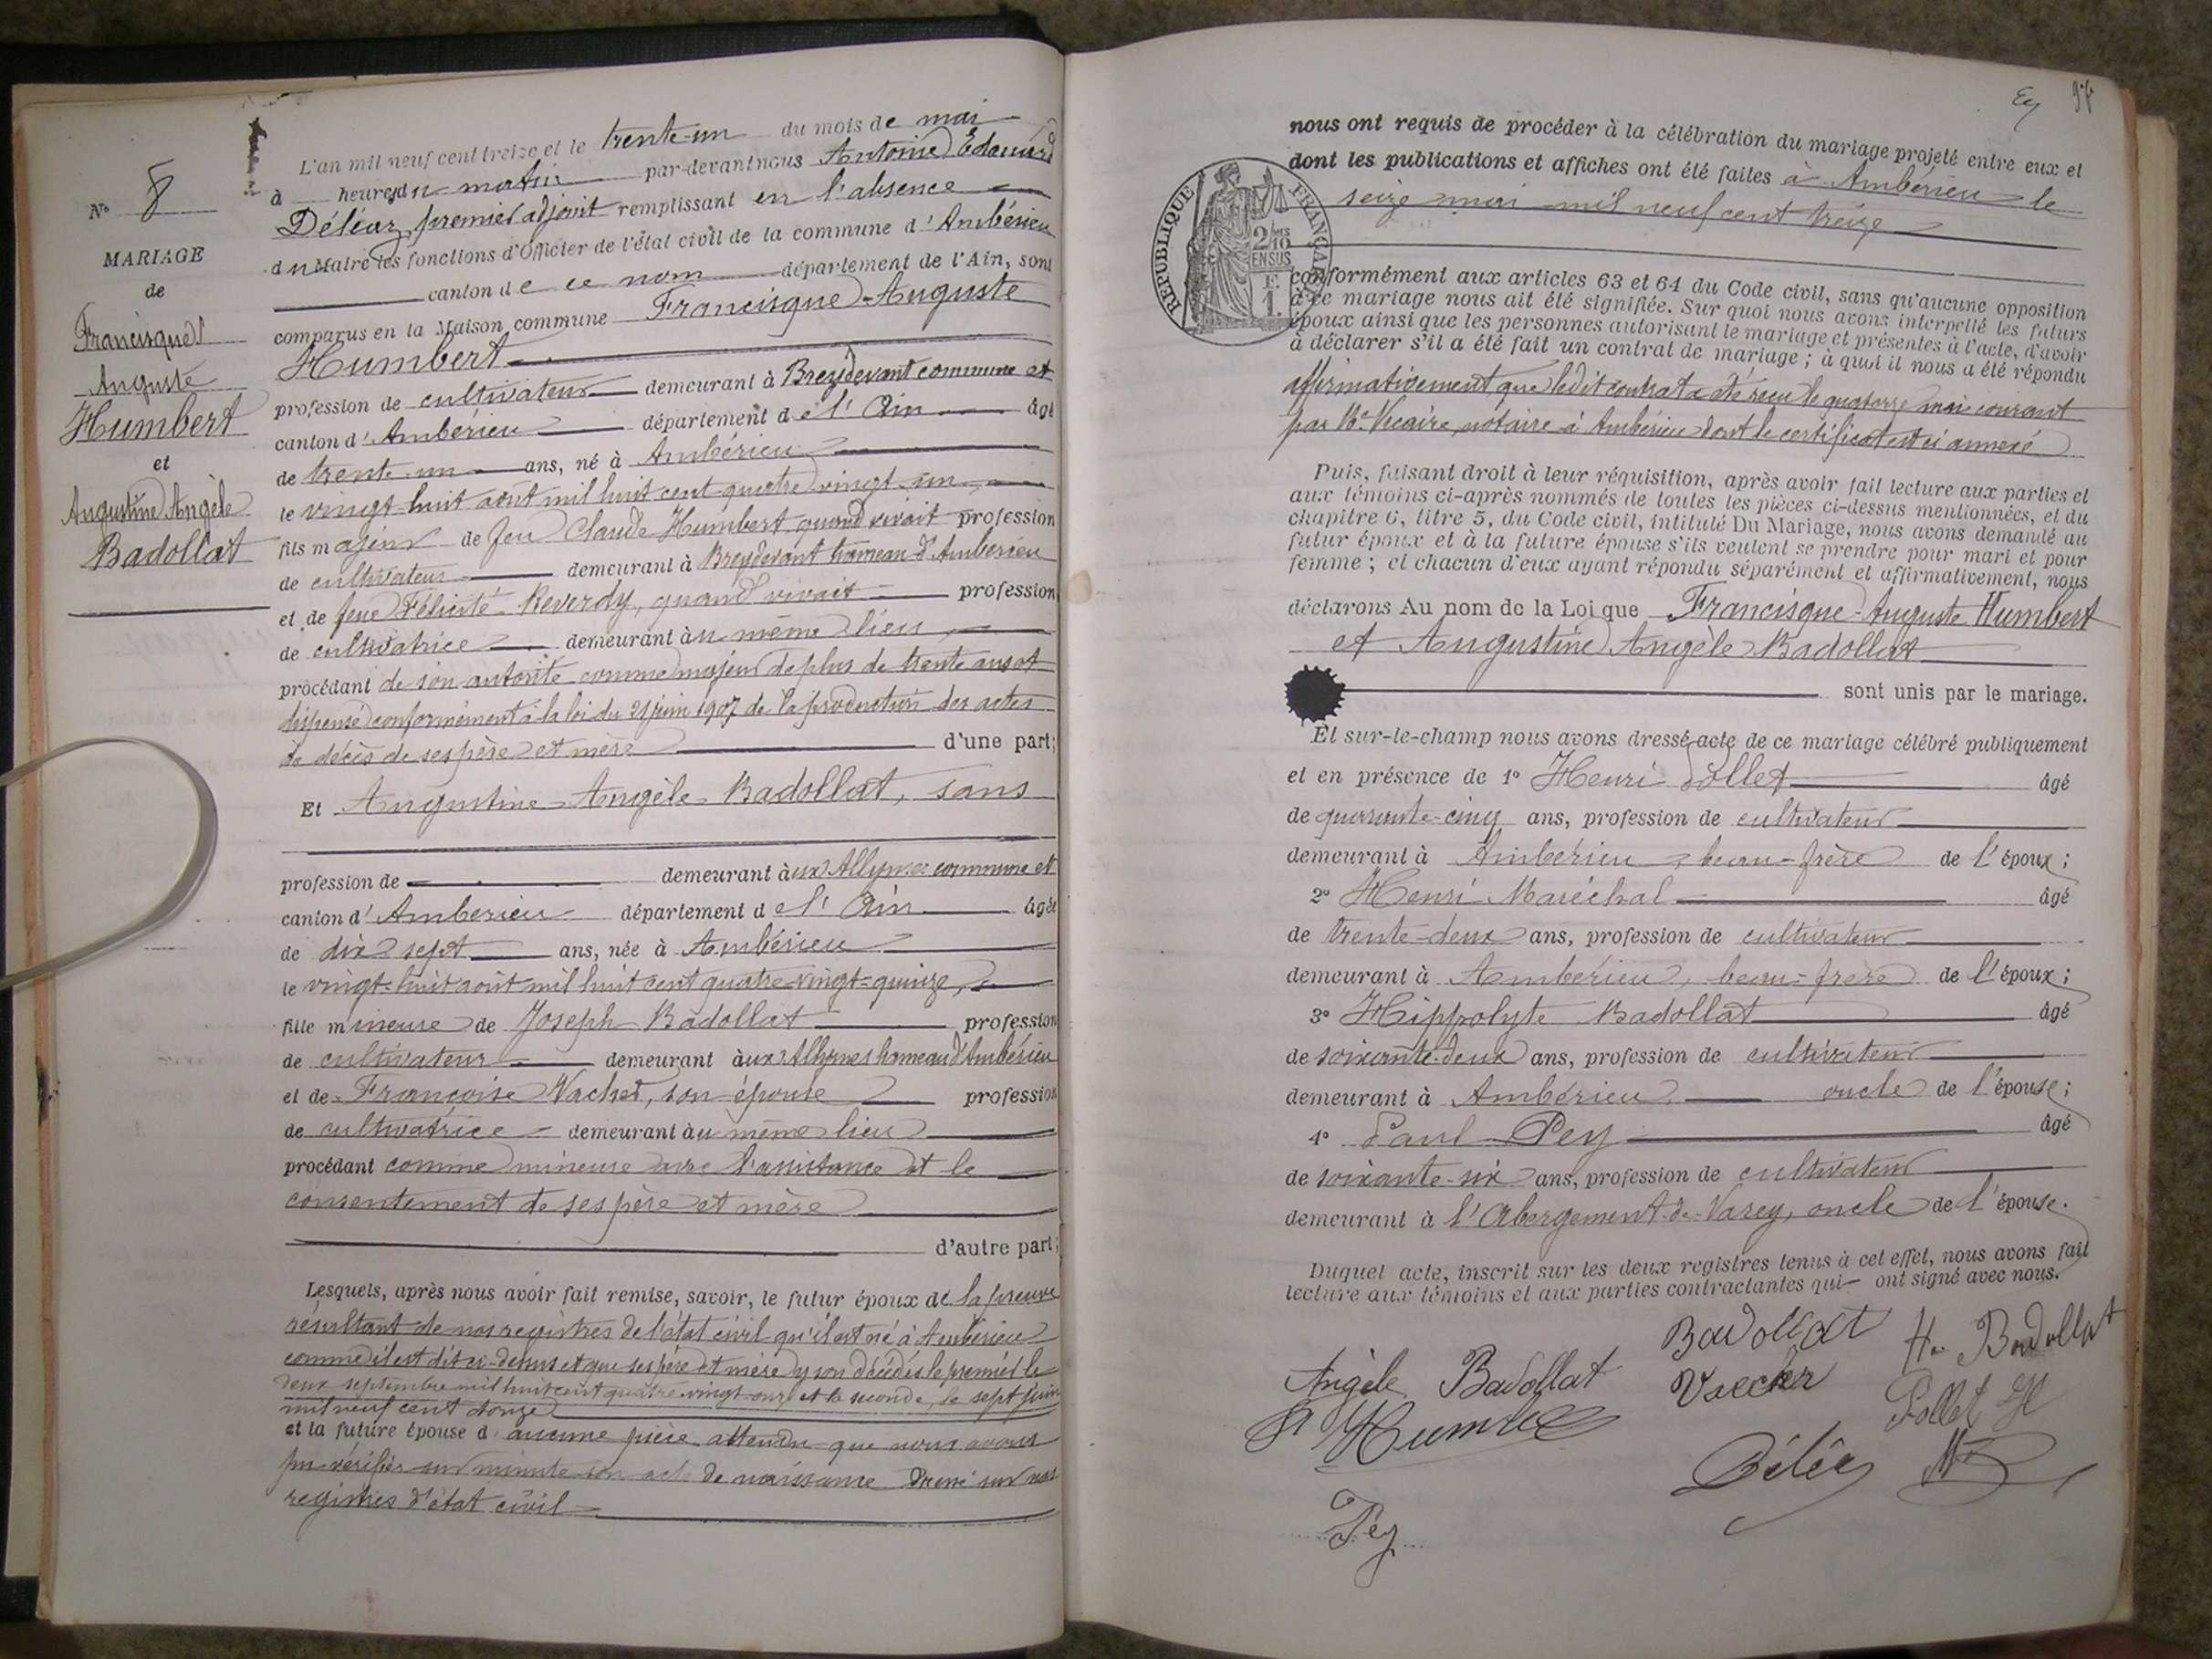 N° 8
MARIAGE
de
Francisque
Auguste
Humbert
et
Augustine Angèle
Badollat
L'an mil neuf cent treize et le trente-un du mois de mai
à heures du matin par-devant nous Antoine Edouard
Déléaz, premier adjoint remplissant en l'absence
du Maire les fonctions d'Officier de l'état civil de la commune d'Ambérieu
canton de ce nom département de l'Ain, sont
comparus en la Maison commune Francisque-Auguste
Humbert
profession de cultivateur demeurant à Breydevant commune et
canton d'Ambérieu département de l'Ain âgé
de trente-un ans, né à Ambérieu
le vingt-huit août mil huit cent quatre vingt-un,
fils majeur de feu Claude Humbert, quand vivait profession
de cultivateur demeurant à Breydevant hameau d'Ambérieu
et de feue Félicité Reverdy, quand vivait profession
de cultivatrice demeurant au même lieu,
procédant de son autorité comme majeur de plus de trente ans et
dispensé conformément à la loi du 21 juin 1907 de la production des actes
de décès de ses père et mère d'une part;
Et Augustine-Angèle Badollat, sans
profession de demeurant aux Allymes commune et
canton d'Ambérieu département de l'Ain âgée
de dix sept ans, née à Ambérieu
le vingt-huit août mil huit cent quatre-vingt-quinze,
fille mineure de Joseph Badollat profession
de cultivateur demeurant aux Allymes hameau d'Ambérieu
et de Françoise Vacher, son épouse profession
de cultivatrice demeurant au même lieu
procédant comme mineure avec l'assistance et le
consentement de ses père et mère
d'autre part;
Lesquels, après nous avoir fait remise, savoir, le futur époux de la preuve
résultant de nos registres de l'état civil qu'il est né à Ambérieu
comme il est dit ci-dessus et que ses père et mère y son décédés le premier le
deux septembre mil huit cent quatre vingt onze et la seconde, le sept juin
mil neuf cent douze
et la future épouse d'aucune pièce attendu que nous avons
pu vérifier sur minute son acte de naissance dressé sur nos
registres d'état civil
nous ont requis de procéder à la célébration du mariage projeté entre eux et
dont les publications et affiches ont été faites à Ambérieu le
seize mai mil neuf cent treize
RÉPUBLIQUE FRANÇAISE
2/10
EN SUS
F.
1.
conformément aux articles 63 et 64 du Code civil, sans qu'aucune opposition
à ce mariage nous ait été signifiée. Sur quoi nous avons interpellé les futurs
époux ainsi que les personnes autorisant le mariage et présentes à l'acte, d'avoir
à déclarer s'il a été fait un contrat de mariage; à quoi il nous a été répondu
affirmativement, que ledit contrat a été reçu le quatorze mai courant
par Me Vicaire, notaire à Ambérieu dont le certificat est ci annexé
Puis, faisant droit à leur réquisition, après avoir fait lecture aux parties et
aux témoins ci-après nommés de toutes les pièces ci-dessus mentionnées, et du
chapitre 6, titre 5, du Code civil, intitulé Du Mariage, nous avons demandé au
futur époux et à la future épouse s'ils veulent se prendre pour mari et pour
femme; et chacun d'eux ayant répondu séparément et affirmativement, nous
déclarons Au nom de la Loi que Francisque-Auguste Humbert
et Augustine Angèle Badollat
sont unis par le mariage.
Et sur-le-champ nous avons dressé acte de ce mariage célébré publiquement
et en présence de 1° Henri Pollet âgé
de quarante-cinq ans, profession de cultivateur
demeurant à Ambérieu, beau-frère de l'époux;
2° Henri Maréchal âgé
de trente-deux ans, profession de cultivateur
demeurant à Ambérieu, beau-frère de l'époux;
3° Hippolyte Badollat âgé
de soixante-deux ans, profession de cultivateur
demeurant à Ambérieu oncle de l'épouse;
4° Paul Pey âgé
de soixante-six ans, profession de cultivateur
demeurant à l'Abergement-de-Varey, oncle de l'épouse.
Duquel acte, inscrit sur les deux registres tenus à cet effet, nous avons fait
lecture aux témoins et aux parties contractantes qui ont signé avec nous.
Badollat Hte Badollat
Angèle Badollat Vacher
Humbert Pollet H
Déléaz
Pey